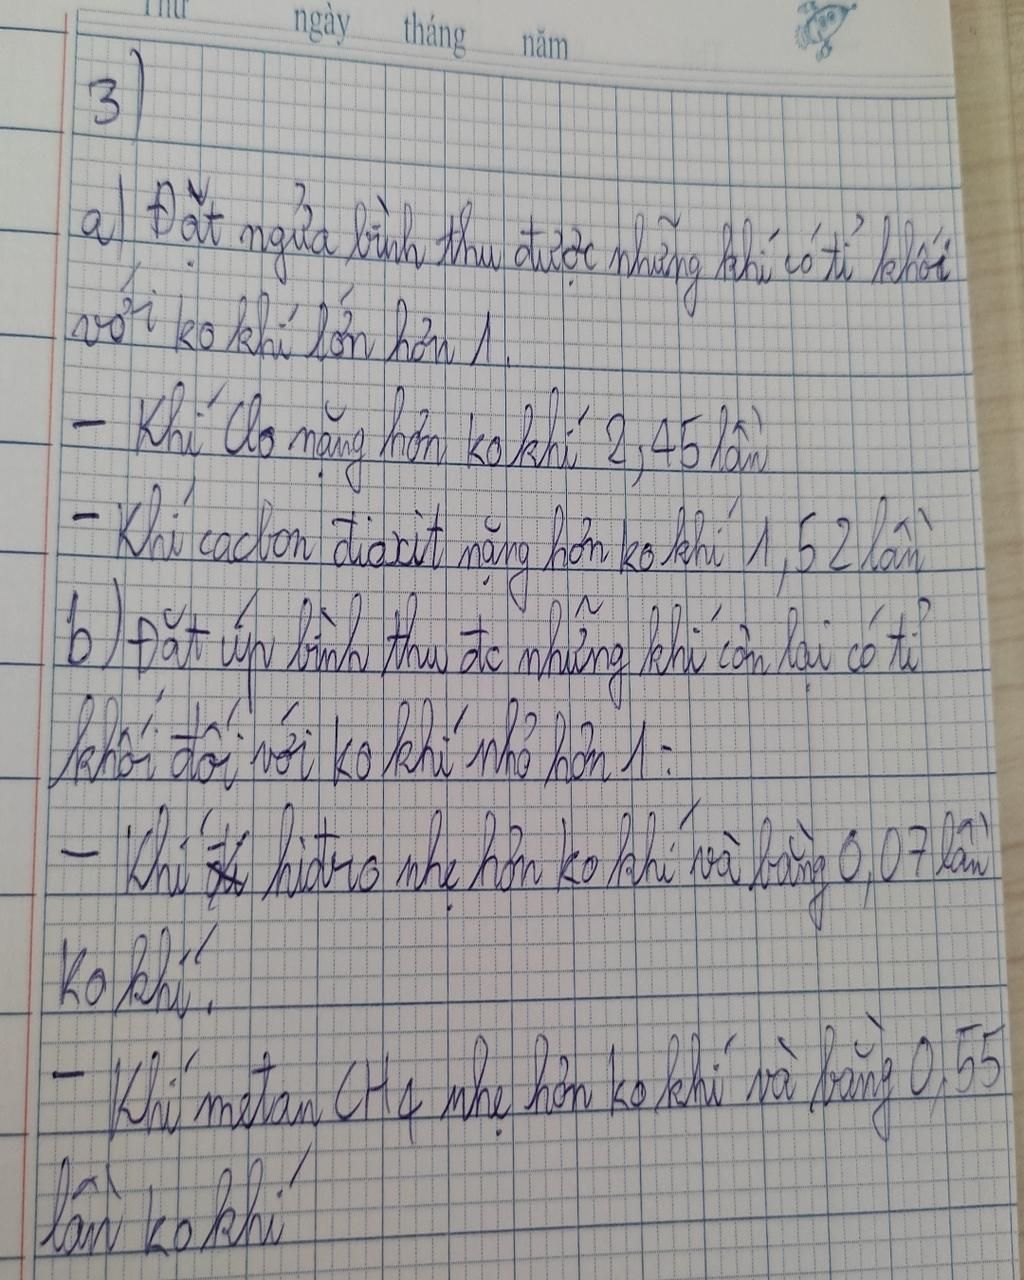 Thứ ngày tháng năm
3)
a) Đặt ngửa bình thu được những khí có tỉ khối
với ko khí lớn hơn 1.
- Khí Clo nặng hơn ko khí 2,45 lần
- Khí cacbon đioxit nặng hơn ko khí 1,52 lần
b) Đặt úp bình thu đc những khí còn lại có tỉ
khối đối với ko khí nhỏ hơn 1:
- Khí hiđro nhẹ hơn ko khí và bằng 0,07 lần
ko khí.
- Khí metan CH4 nhẹ hơn ko khí và bằng 0,55
lần ko khí